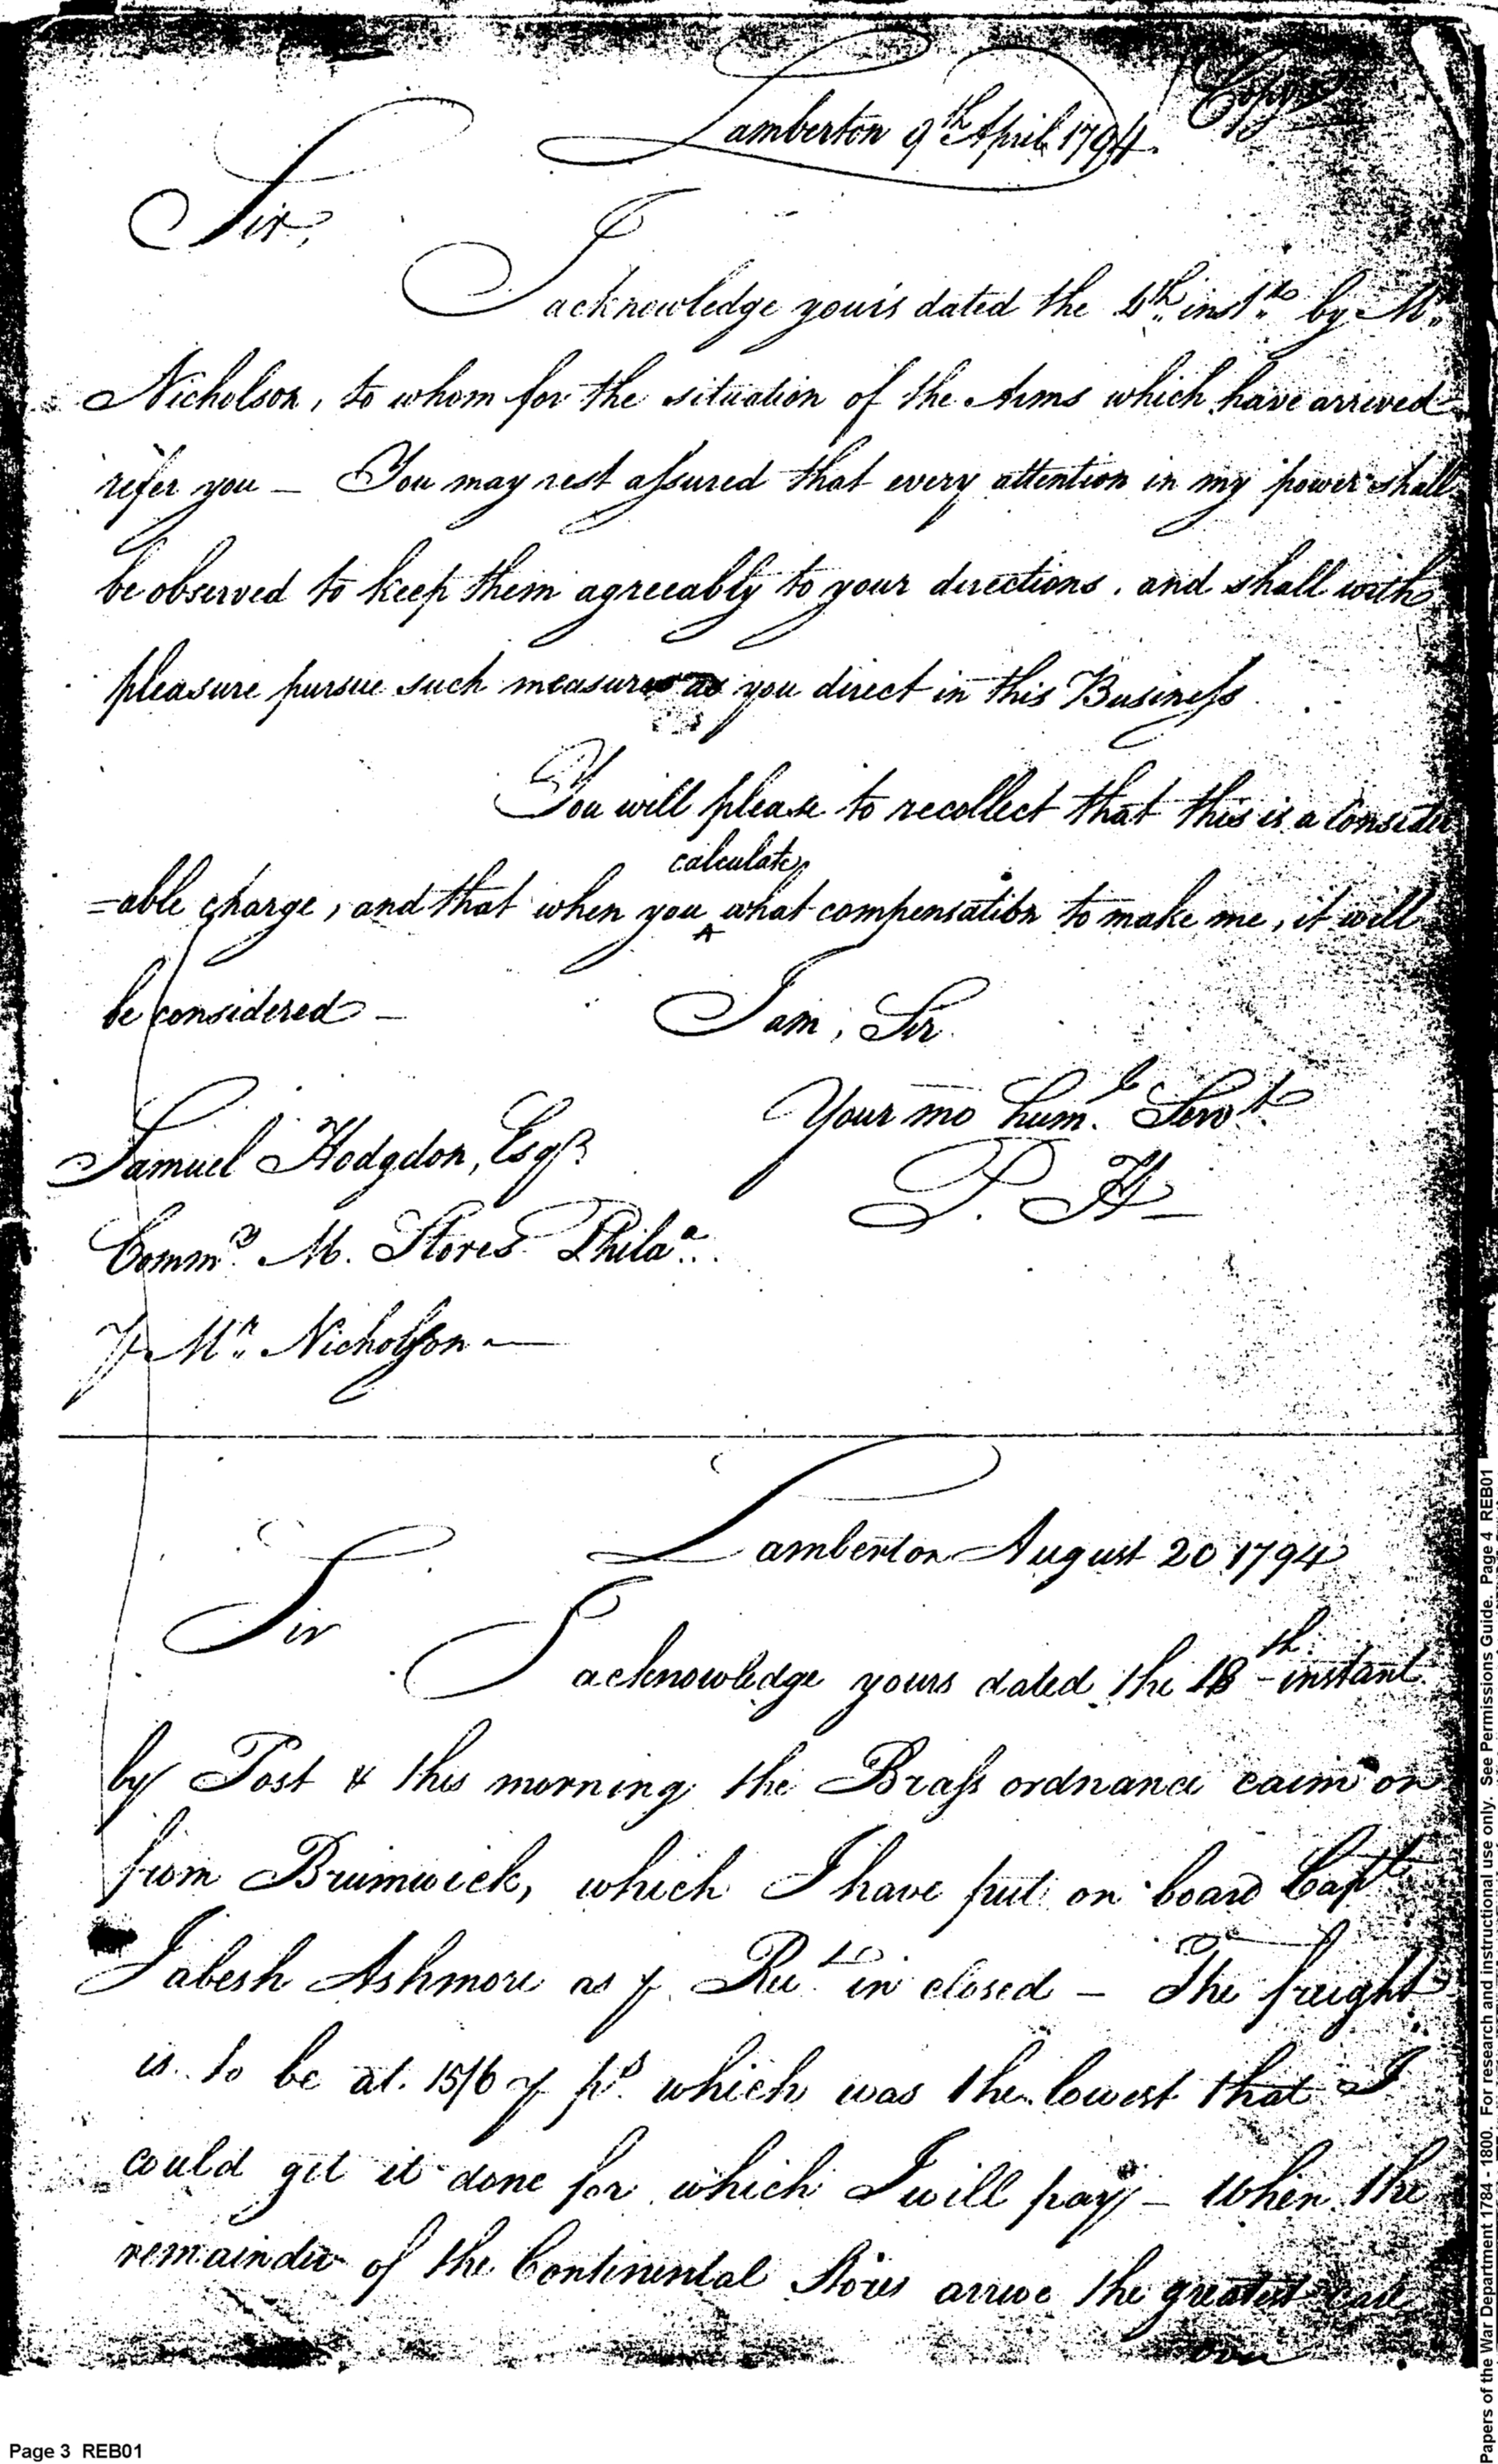 Copy
Lamberton 9th April 1794.
Sir,
I acknowledge yours dated the 4th inst. by Mr.
Nicholson, to whom for the situation of the Arms which have arrived
refer you — You may rest assured that every attention in my power shall
be observed to keep them agreeably to your directions, and shall with
pleasure pursue such measures as you direct in this Business
You will please to recollect that this is a Consider
=able charge, and that when you calculate what compensation to make me, it will
be considered —
I am, Sir
Your mo humle. Servt.
P. H—
Samuel Hodgdon, Esqr.
Commy. M. Stores Phila.
⅌ Mr. Nicholson —
Lamberton August 20 1794
Sir
I acknowledge yours dated the 18th instant
by Post & this morning the Brass ordnance came on
from Brunswick, which I have put on board Capt
Jabesh Ashmore as ⅌ Rect in closed — The freight
is to be at 15/6 ⅌ ps. which was the lowest that I
could get it done for which I will pay — When the
remainder of the Continental Stores arrive the greatest care
over
Page 3 REB01
Papers of the War Department 1784 - 1800. For research and instructional use only. See Permissions Guide. Page 4 REB01